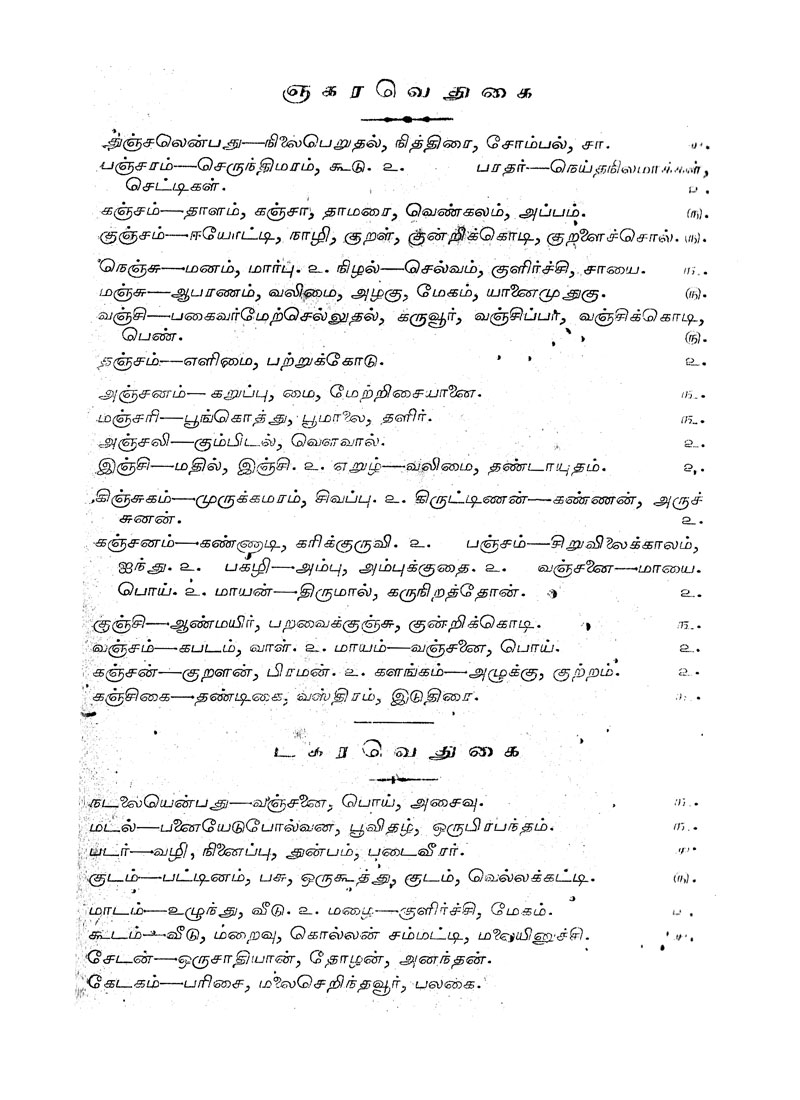 ஞகரவெதுகை
துஞ்சலென்பது—நிலைபெறுதல், நித்திரை, சோம்பல், சா. ச.
பஞ்சரம்—செருந்திமரம், கூடு. உ. பரதர்—நெய்தநிலமாக்கள்,
செட்டிகள். உ.
கஞ்சம்—தாளம், கஞ்சா, தாமரை, வெண்கலம், அப்பம். ரு.
குஞ்சம்—ஈயோட்டி, நாழி, குறள், குன்றிக்கொடி, குறளைச்சொல். ரு.
நெஞ்சு—மனம், மார்பு. உ. நிழல்—செல்வம், குளிர்ச்சி, சாயை. ௩.
மஞ்சு—ஆபரணம், வலிமை, அழகு, மேகம், யானைமுதுகு. ரு.
வஞ்சி—பகைவர்மேற்செல்லுதல், கருவூர், வஞ்சிப்பா, வஞ்சிக்கொடி,
பெண். ரு.
தஞ்சம்—எளிமை, பற்றுக்கோடு. உ.
அஞ்சனம்—கறுப்பு, மை, மேற்றிசையானை. ௩.
மஞ்சரி—பூங்கொத்து, பூமாலை, தளிர். ௩.
அஞ்சலி—கும்பிடல், வௌவால். உ.
இஞ்சி—மதில், இஞ்சி. உ. எறுழ்—வலிமை, தண்டாயுதம். உ.
கிஞ்சுகம்—முருக்கமரம், சிவப்பு. உ. கிருட்டிணன்—கண்ணன், அருச்
சுனன். உ.
கஞ்சனம்—கண்ணாடி, கரிக்குருவி. உ. பஞ்சம்—சிறுவிலைக்காலம்,
ஐந்து. உ. பகழி—அம்பு, அம்புக்குதை. உ. வஞ்சனை—மாயை.
பொய். உ. மாயன்—திருமால், கருநிறத்தோன். உ.
குஞ்சி—ஆண்மயிர், பறவைக்குஞ்சு, குன்றிக்கொடி. ௩.
வஞ்சம்—கபடம், வாள். உ. மாயம்—வஞ்சனை, பொய். உ.
கஞ்சன்—குறளன், பிரமன். உ. களங்கம்—அழுக்கு, குற்றம். உ.
கஞ்சிகை—தண்டிகை, வஸ்திரம், இடுதிரை.
டகரவெதுகை
நடலையென்பது—வஞ்சனை, பொய், அசைவு. ௩.
மடல்—பனையேடுபோல்வன, பூவிதழ், ஒருபிரபந்தம். ௩.
படர்—வழி, நினைப்பு, துன்பம், படைவீரர். ச.
குடம்—பட்டினம், பசு, ஒருகூத்து, குடம், வெல்லக்கட்டி. ரு.
மாடம்—உழுந்து, வீடு. உ. மழை—குளிர்ச்சி, மேகம். உ.
கூடம்—வீடு, மறைவு, கொல்லன் சம்மட்டி, மலையினுச்சி. ச.
சேடன்—ஒருசாதியான், தோழன், அனந்தன்.
கேடகம்—பரிசை, மலைசெறிந்தவூர், பலகை.